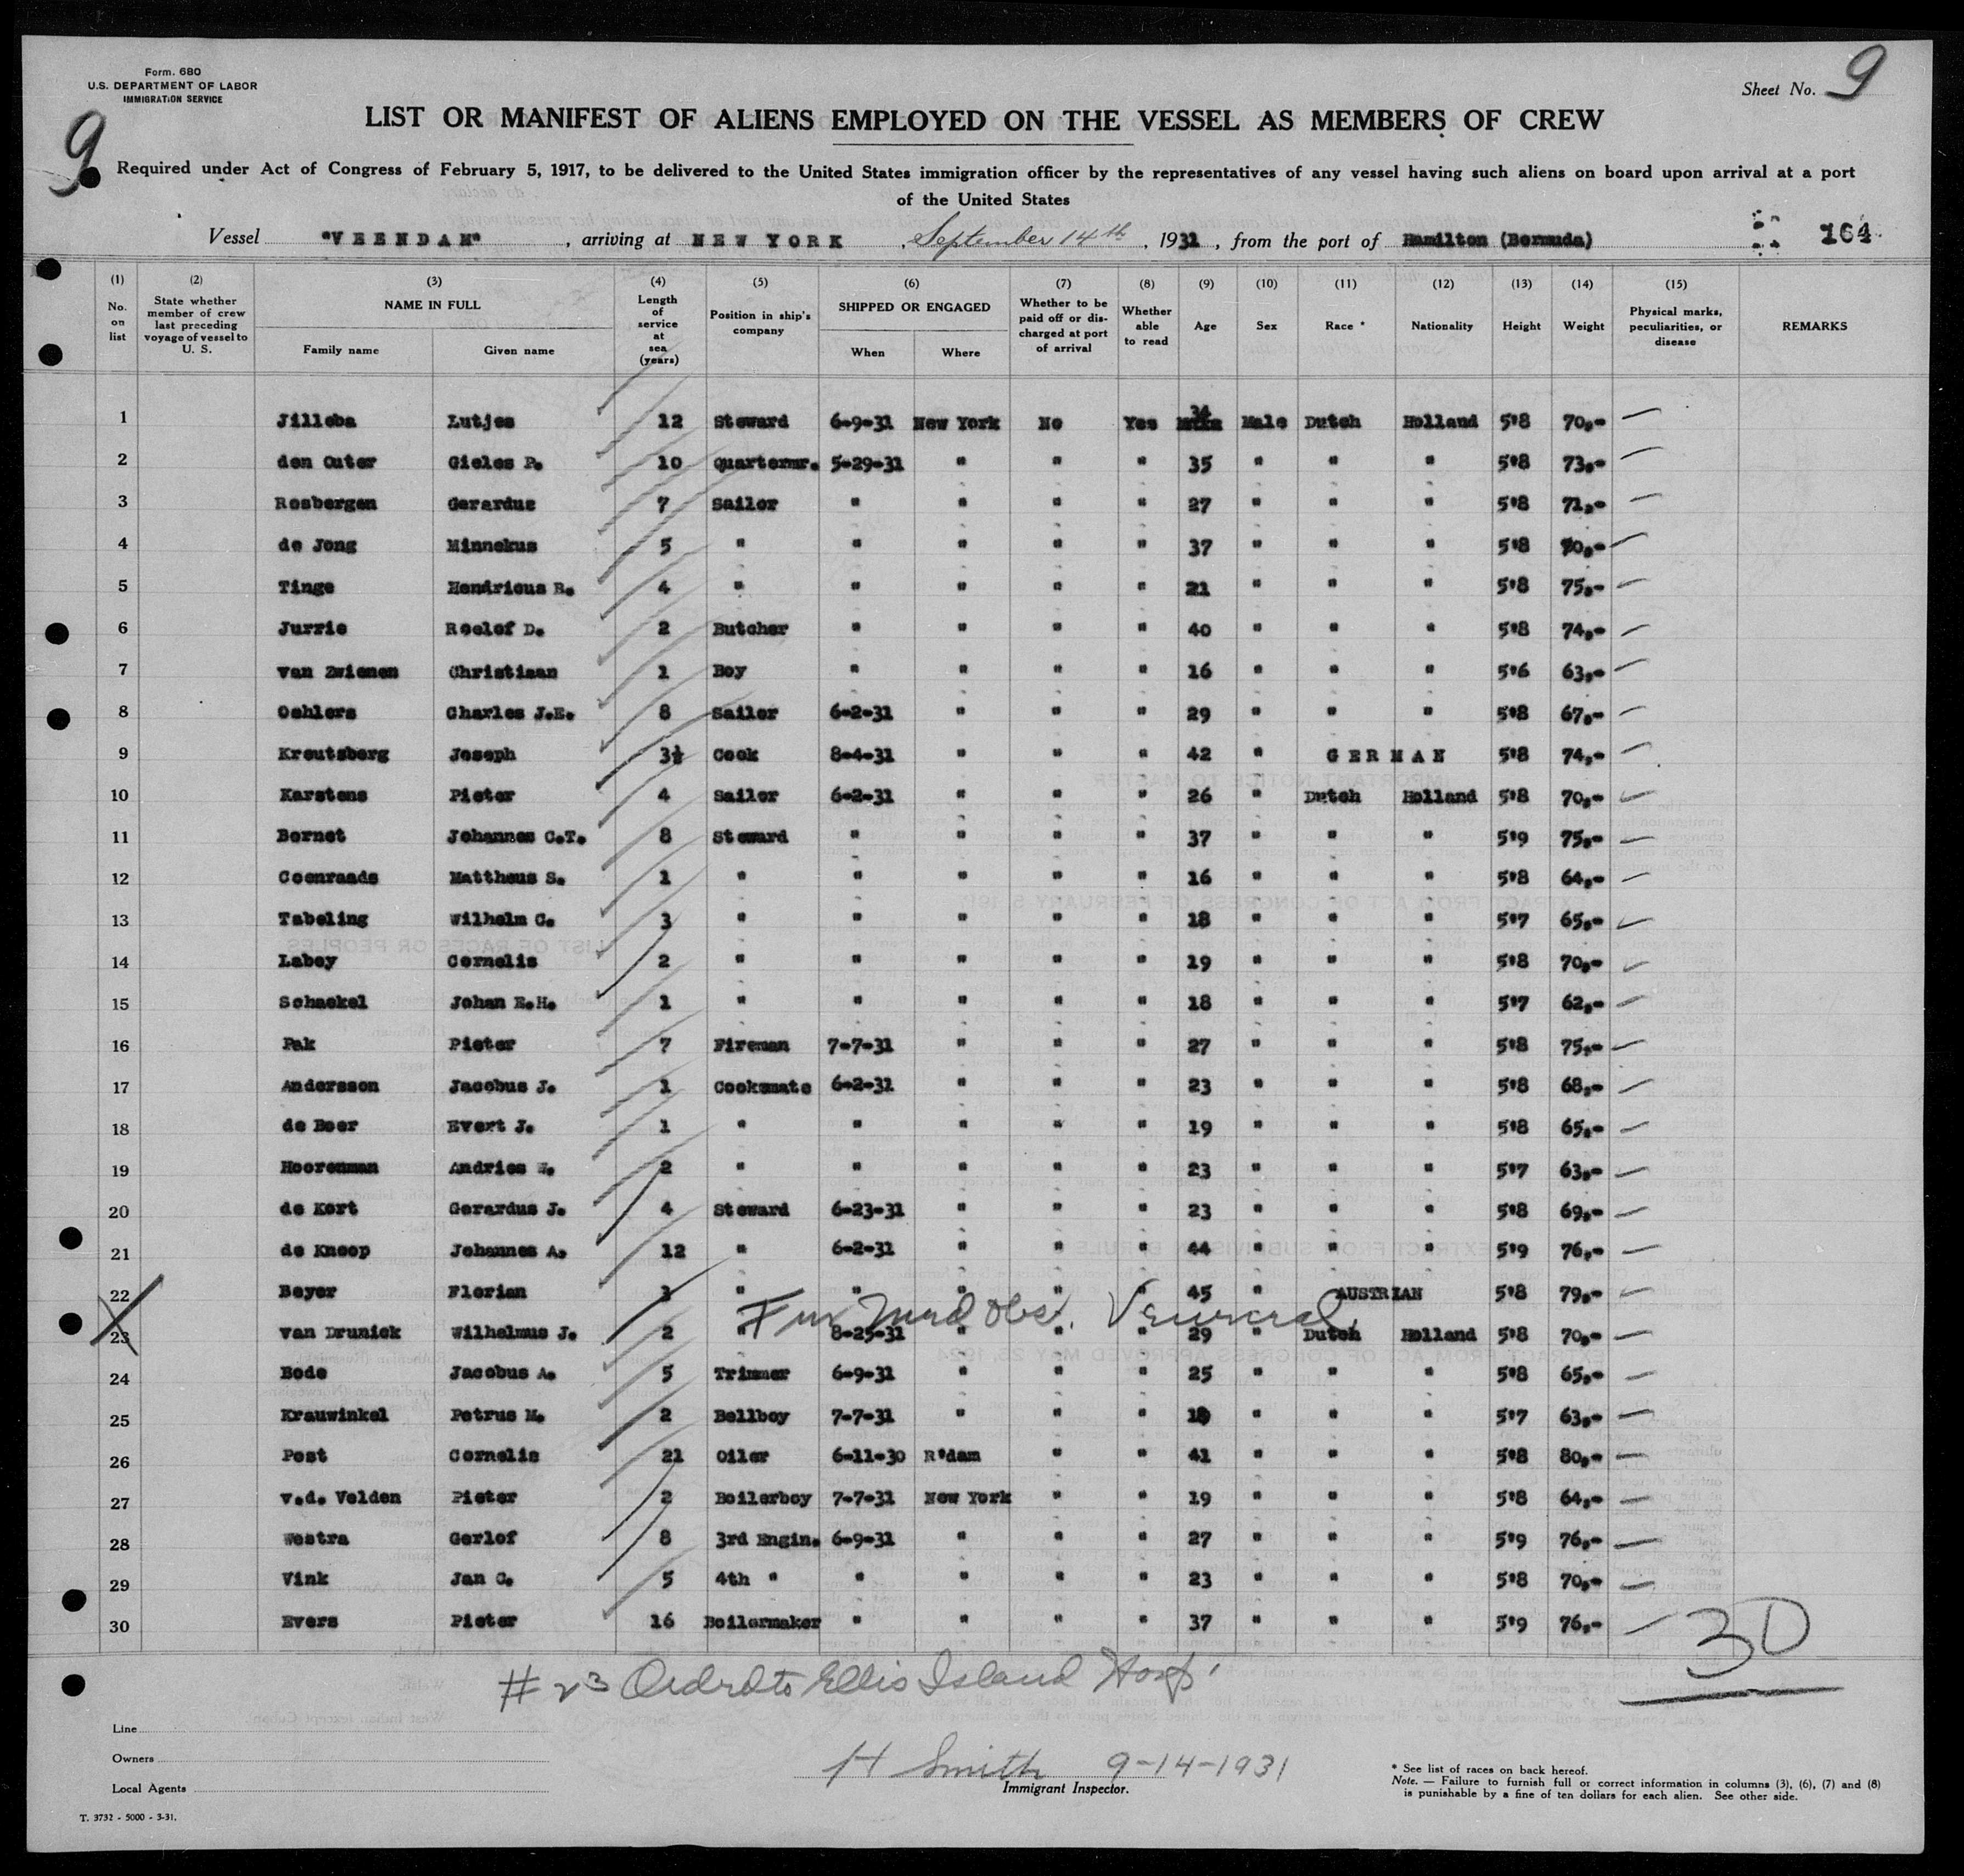 Form. 680
U.S. DEPARTMENT OF LABOR
IMMIGRATION SERVICE
Sheet No. 9
9
LIST OR MANIFEST OF ALIENS EMPLOYED ON THE VESSEL AS MEMBERS OF CREW
Required under Act of Congress of February 5, 1917, to be delivered to the United States immigration officer by the representatives of any vessel having such aliens on board upon arrival at a port
of the United States
Vessel "VEENDAM", arriving at NEW YORK, September 14th, 1931, from the port of Hamilton (Bermuda) 164
(1) No. on list (2) State whether member of crew last preceding voyage of vessel to U. S. (3) NAME IN FULL Family name Given name (4) Length of service at sea (years) (5) Position in ship's company (6) SHIPPED OR ENGAGED When Where (7) Whether to be paid off or discharged at port of arrival (8) Whether able to read (9) Age (10) Sex (11) Race * (12) Nationality (13) Height (14) Weight (15) Physical marks, peculiarities, or disease REMARKS
1 Jilleba Lutjes 12 Steward 6-9-31 New York No Yes 34 Male Dutch Holland 5'8 70,-
2 den Outer Gieles P. 10 Quartermr. 5-29-31 " " " 35 " " " 5'8 73,-
3 Rosbergen Gerardus 7 Sailor " " " " 27 " " " 5'8 71,-
4 de Jong Minnekus 5 " " " " " 37 " " " 5'8 70,-
5 Tinge Hendricus R. 4 " " " " " 21 " " " 5'8 75,-
6 Jurrie Roelof D. 2 Butcher " " " " 40 " " " 5'8 74,-
7 van Zwienen Christiaan 1 Boy " " " " 16 " " " 5'6 63,-
8 Oehlers Charles J.E. 8 Sailor 6-2-31 " " " 29 " " " 5'8 67,-
9 Kreutsberg Joseph 3½ Cook 8-4-31 " " " 42 " GERMAN 5'8 74,-
10 Karstens Pieter 4 Sailor 6-2-31 " " " 26 " Dutch Holland 5'8 70,-
11 Bernet Johannes C.T. 8 Steward " " " " 37 " " " 5'9 75,-
12 Coenraads Mattheus S. 1 " " " " " 16 " " " 5'8 64,-
13 Tabeling Wilhelm C. 3 " " " " " 18 " " " 5'7 65,-
14 Labey Cornelis 2 " " " " " 19 " " " 5'8 70,-
15 Schaekel Johan E.H. 1 " " " " " 18 " " " 5'7 62,-
16 Pak Pieter 7 Fireman 7-7-31 " " " 27 " " " 5'8 75,-
17 Andersson Jacobus J. 1 Cooksmate 6-2-31 " " " 23 " " " 5'8 68,-
18 de Boer Evert J. 1 " " " " " 19 " " " 5'8 65,-
19 Hoorenman Andries W. 2 " " " " " 23 " " " 5'7 63,-
20 de Kort Gerardus J. 4 Steward 6-23-31 " " " 23 " " " 5'8 69,-
21 de Knoop Johannes A. 12 " 6-2-31 " " " 44 " " " 5'9 76,-
22 Beyer Florian 3 " " " " " 45 " AUSTRIAN 5'8 79,-
Med Obs. Venereal
23 van Druniek Wilhelmus J. 2 " 8-25-31 " " " 29 " Dutch Holland 5'8 70,-
24 Bode Jacobus A. 5 Trimmer 6-9-31 " " " 25 " " " 5'8 65,-
25 Krauwinkel Petrus M. 2 Bellboy 7-7-31 " " " " " " 5'7 63,-
26 Post Cornelis 21 Oiler 6-11-30 R'dam " " 41 " " " 5'8 80,-
27 v.d. Velden Pieter 2 Boilerboy 7-7-31 New York " " 19 " " " 5'8 64,-
28 Westra Gerlof 8 3rd Engin. 6-9-31 " " " 27 " " " 5'9 76,-
29 Vink Jan C. 5 4th " " " " " 23 " " " 5'8 70,-
30 Evers Pieter 16 Boilermaker " " " " 37 " " " 5'9 76,-
30
#23 Ordrd to Ellis Island Hosp.
Line
Owners
Local Agents
H Smith 9-14-1931
Immigrant Inspector.
* See list of races on back hereof.
Note. — Failure to furnish full or correct information in columns (3), (6), (7) and (8)
is punishable by a fine of ten dollars for each alien. See other side.
T. 3732 - 5000 - 3-31.